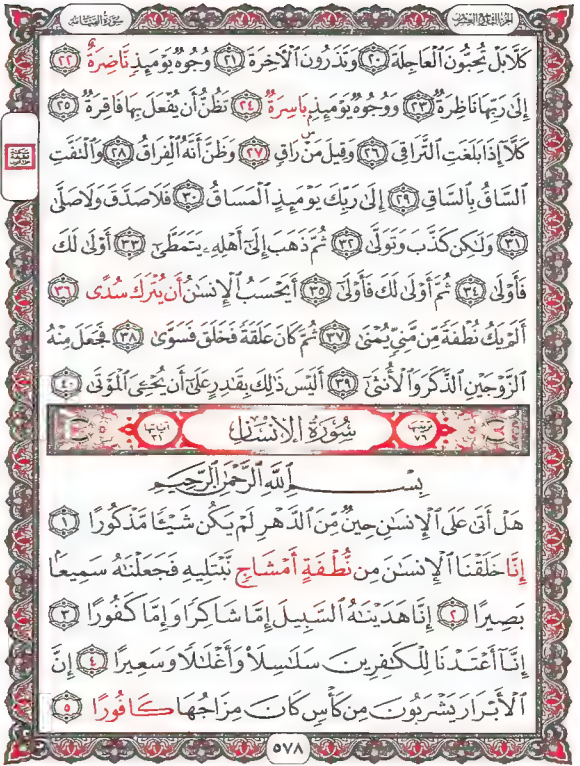 الجزء التاسع والعشرون
سورة القيامة
كَلَّا بَلْ تُحِبُّونَ ٱلْعَاجِلَةَ ٢٠ وَتَذَرُونَ ٱلْءَاخِرَةَ ٢١ وُجُوهٌ يَوْمَئِذٍ نَّاضِرَةٌ ٢٢
إِلَىٰ رَبِّهَا نَاظِرَةٌ ٢٣ وَوُجُوهٌ يَوْمَئِذٍۭ بَاسِرَةٌ ٢٤ تَظُنُّ أَن يُفْعَلَ بِهَا فَاقِرَةٌ ٢٥
كَلَّآ إِذَا بَلَغَتِ ٱلتَّرَاقِىَ ٢٦ وَقِيلَ مَنْ ۜ رَاقٍ ٢٧ وَظَنَّ أَنَّهُ ٱلْفِرَاقُ ٢٨ وَٱلْتَفَّتِ
ٱلسَّاقُ بِٱلسَّاقِ ٢٩ إِلَىٰ رَبِّكَ يَوْمَئِذٍ ٱلْمَسَاقُ ٣٠ فَلَا صَدَّقَ وَلَا صَلَّىٰ
٣١ وَلَٰكِن كَذَّبَ وَتَوَلَّىٰ ٣٢ ثُمَّ ذَهَبَ إِلَىٰٓ أَهْلِهِۦ يَتَمَطَّىٰٓ ٣٣ أَوْلَىٰ لَكَ
فَأَوْلَىٰ ٣٤ ثُمَّ أَوْلَىٰ لَكَ فَأَوْلَىٰٓ ٣٥ أَيَحْسَبُ ٱلْإِنسَٰنُ أَن يُتْرَكَ سُدًى ٣٦
أَلَمْ يَكُ نُطْفَةً مِّن مَّنِىٍّ يُمْنَىٰ ٣٧ ثُمَّ كَانَ عَلَقَةً فَخَلَقَ فَسَوَّىٰ ٣٨ فَجَعَلَ مِنْهُ
ٱلزَّوْجَيْنِ ٱلذَّكَرَ وَٱلْأُنثَىٰٓ ٣٩ أَلَيْسَ ذَٰلِكَ بِقَٰدِرٍ عَلَىٰٓ أَن يُحْـِۧىَ ٱلْمَوْتَىٰ ٤٠
ترتيبها ٧٦ سُورَةُ الْإِنسَانِ آياتها ٣١
بِسْمِ ٱللَّهِ ٱلرَّحْمَٰنِ ٱلرَّحِيمِ
هَلْ أَتَىٰ عَلَى ٱلْإِنسَٰنِ حِينٌ مِّنَ ٱلدَّهْرِ لَمْ يَكُن شَيْـًٔا مَّذْكُورًا ١
إِنَّا خَلَقْنَا ٱلْإِنسَٰنَ مِن نُّطْفَةٍ أَمْشَاجٍ نَّبْتَلِيهِ فَجَعَلْنَٰهُ سَمِيعًۢا
بَصِيرًا ٢ إِنَّا هَدَيْنَٰهُ ٱلسَّبِيلَ إِمَّا شَاكِرًا وَإِمَّا كَفُورًا ٣
إِنَّآ أَعْتَدْنَا لِلْكَٰفِرِينَ سَلَٰسِلَا۟ وَأَغْلَٰلًا وَسَعِيرًا ٤ إِنَّ
ٱلْأَبْرَارَ يَشْرَبُونَ مِن كَأْسٍ كَانَ مِزَاجُهَا كَافُورًا ٥
٥٧٨